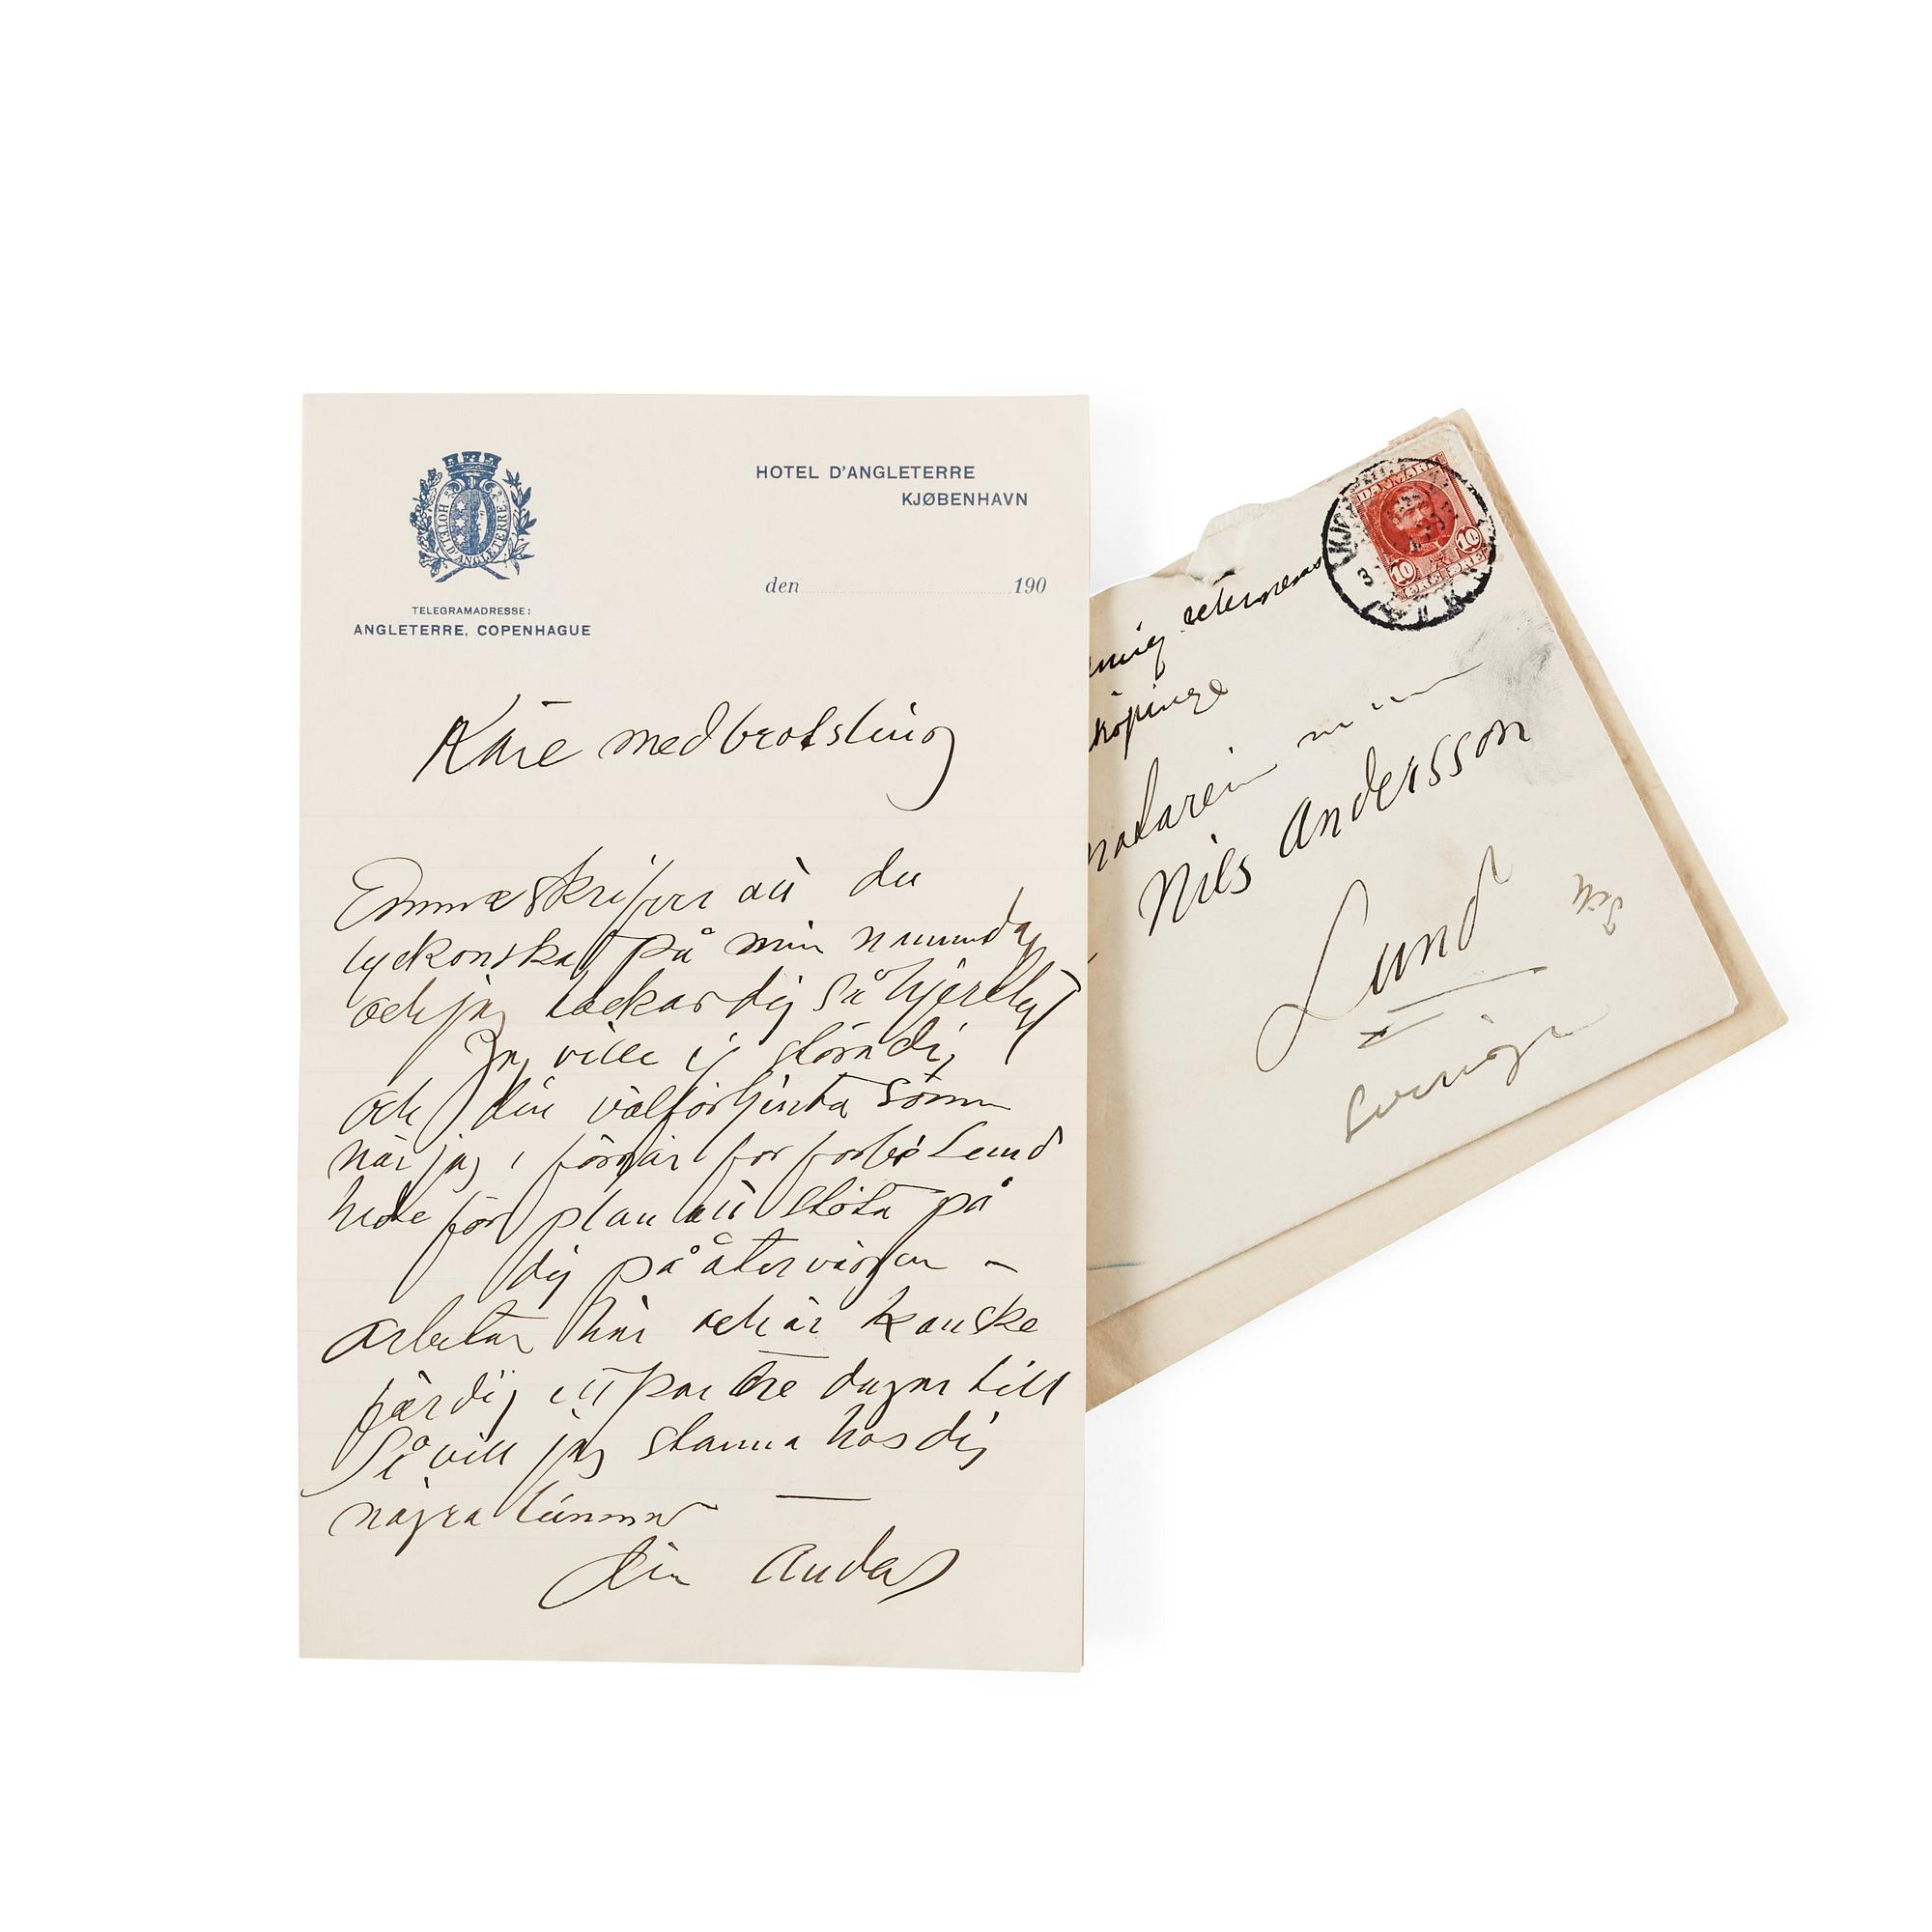 HOTEL D'ANGLETERRE
HOTEL D'ANGLETERRE
KJØBENHAVN
den 190
TELEGRAMADRESSE:
ANGLETERRE, COPENHAGUE
Käre medbrotsling
Emma skrifver att du
på min
och jag tackar dig så hjertligt
Jag ville ej störa dig
och din välförtjenta sömn
när jag i förgår for förbi Lund
för plan att stöta på
dig på återvägen –
arbetar här och är kanske
färdig ett par tre dagar till
Så vill jag stanna hos dig
några timmar —
Din Anders
DANMARK
10 10
ØRE ØRE
returneras
köpinge
Nils Andersson
Lund
Sverige